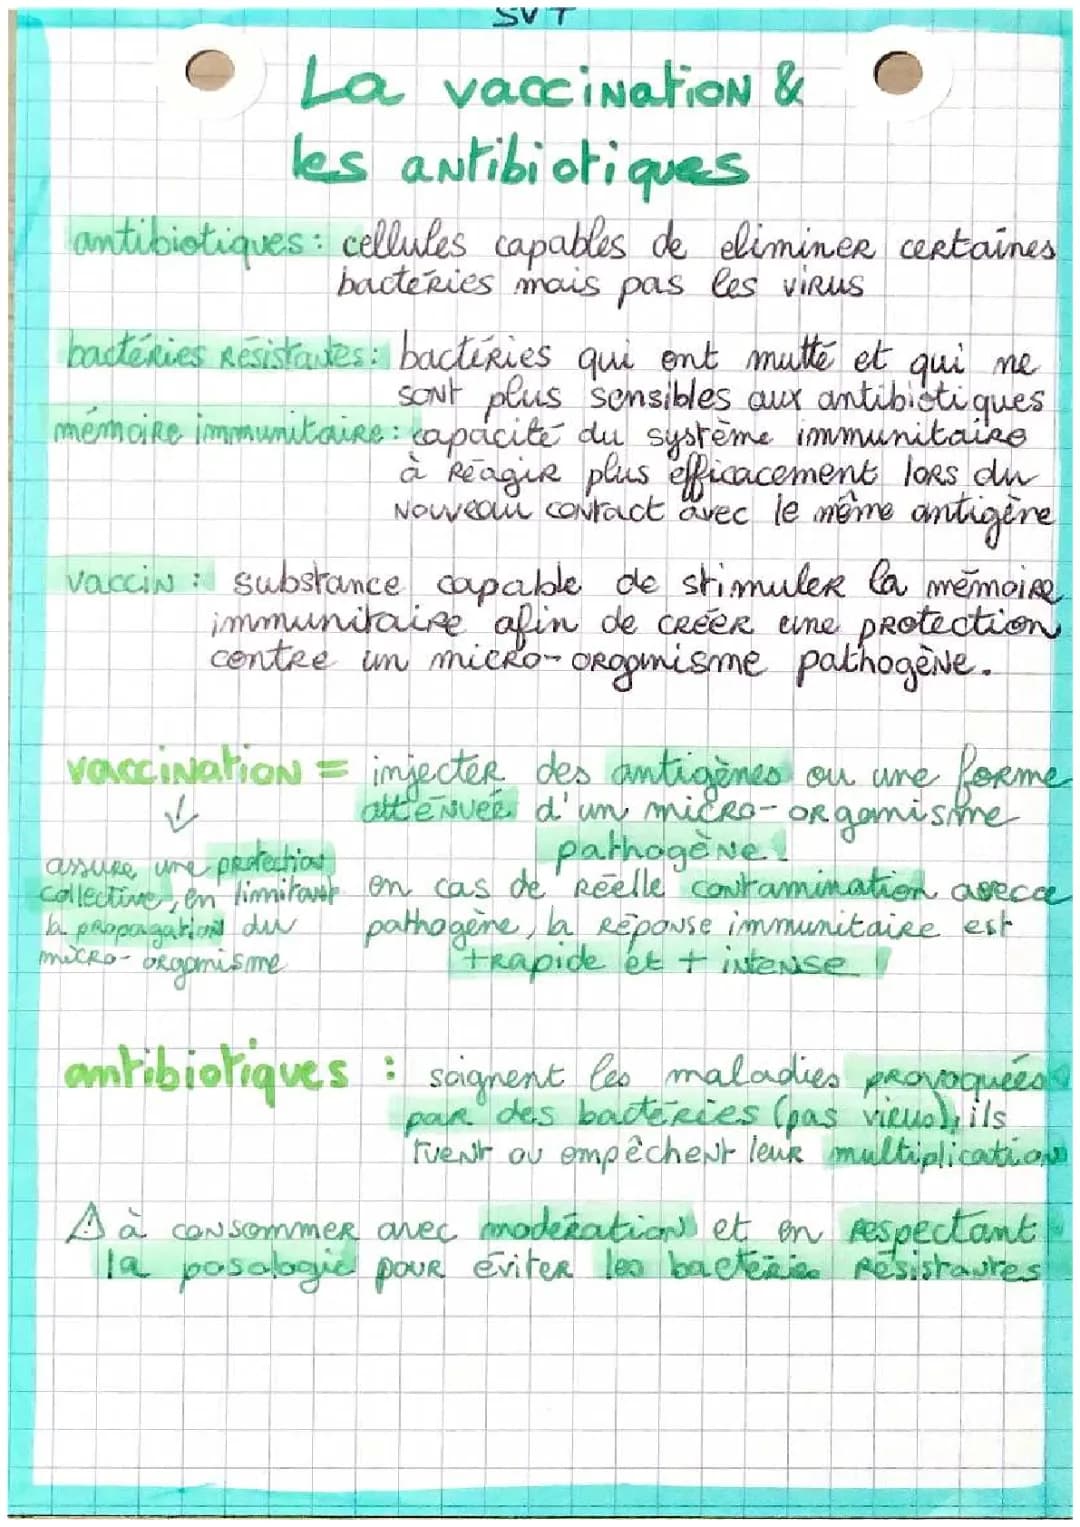 SVT
La vaccination &
les antibiotiques
antibiotiques : cellules capables de eliminer certaines
bactéries mais pas les virus
bactéries résistantes : bactéries qui ont mutté et qui ne
sont plus sensibles aux antibiotiques
mémoire immunitaire : capacité du système immunitaire
à réagir plus efficacement lors du
nouveau contact avec le même antigène
vaccin : substance capable de stimuler la mémoire
immunitaire afin de créer une protection
contre un micro-organisme pathogène.
vaccination = injecter des antigènes ou une forme
atténuée d'un micro-organisme
pathogène.
assure une protection
collective, en limitant
la propagation du
micro-organisme
en cas de réelle contamination avec ce
pathogène, la réponse immunitaire est
+ rapide et + intense !
antibiotiques : soignent les maladies provoquées
par des bactéries (pas virus), ils
tuent ou empêchent leur multiplication
⚠ à consommer avec modération et en respectant
la posologie pour éviter les bactéries résistantes